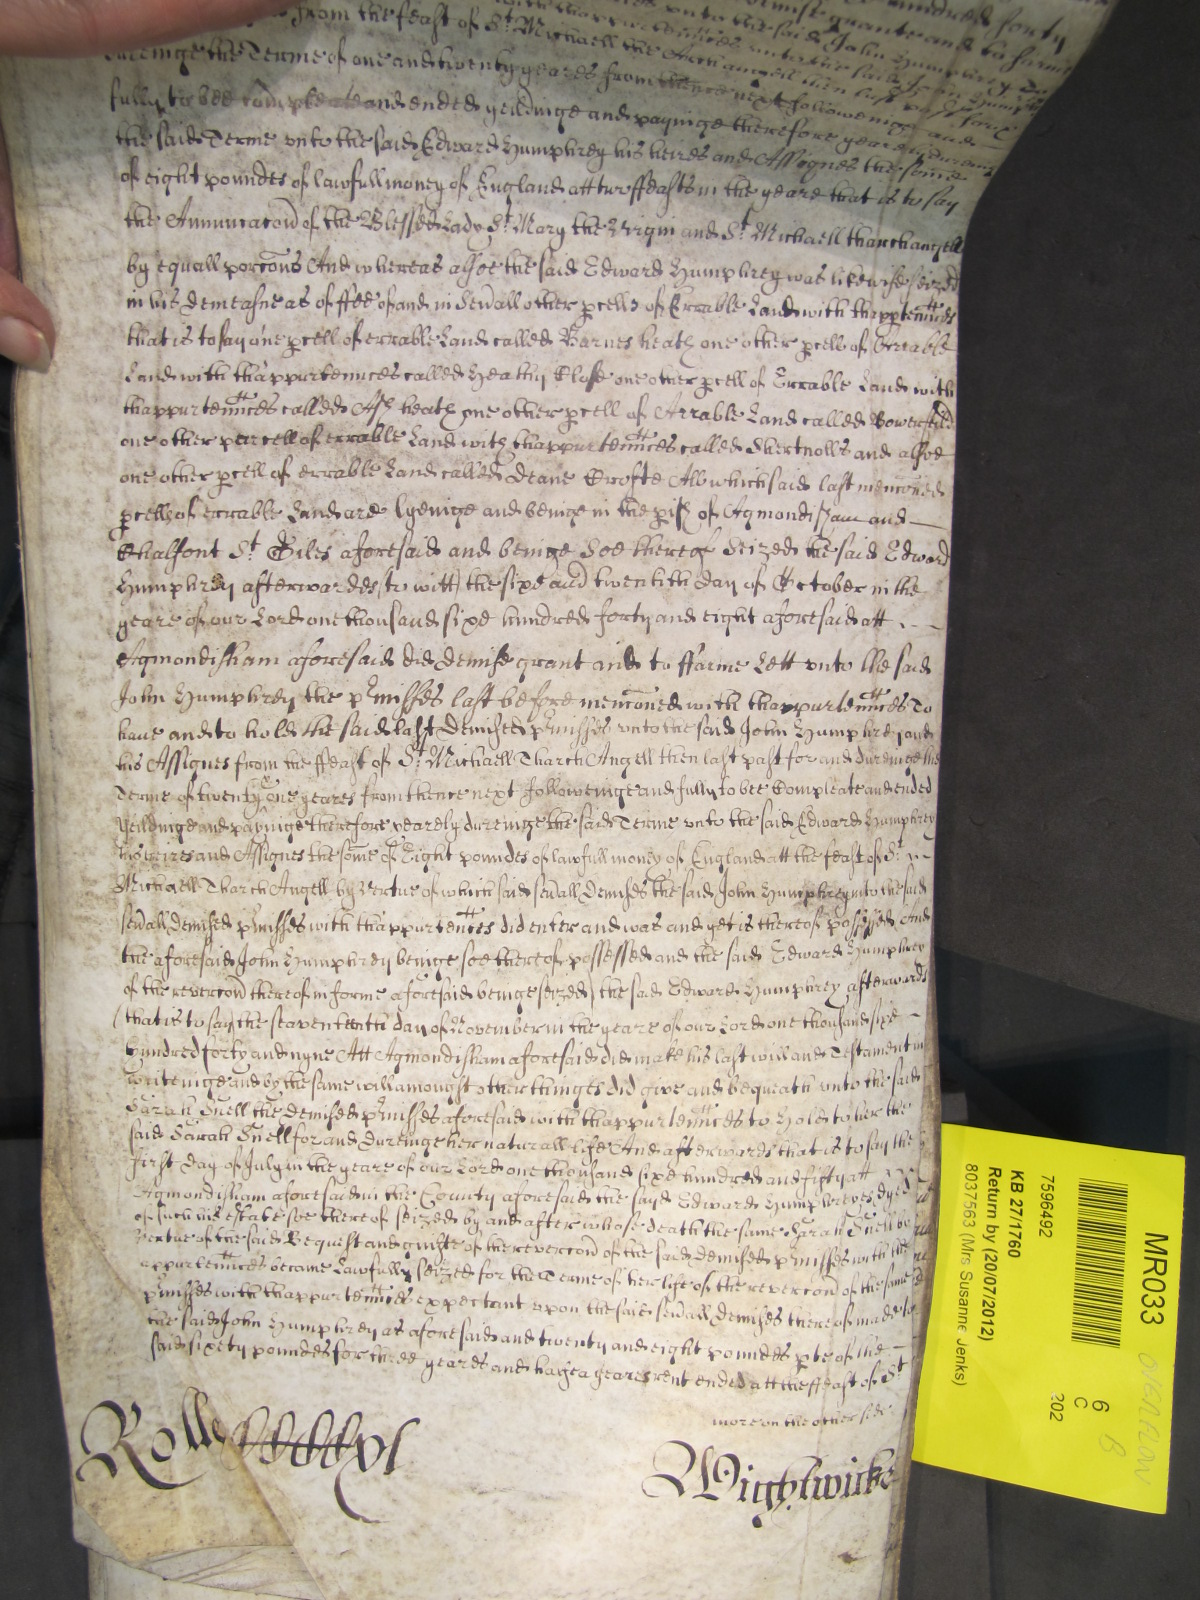 hundred forty
demise grante and to farme
vnto the said John Humphrey To
from the feast of St Michaell the Archangell then last past for &
dureinge the Terme of one and twenty yeares from thence next followeinge and
fully to bee compleate and ended yeildinge and payinge therefore yearely dureinge
the said Terme vnto the said Edward Humphrey his heires and Assignes the some
of eight poundes of lawfull money of England att two ffeasts in the yeare that is to say
the Annunciacōn of the Blessed Lady St Mary the Virgin and St Michaell tharchangell
by equall porcōns And whereas alsoe the said Edward Humphrey was likewise seized
in his demeasne as of ffee of and in sevāll other pcells of Errable Land with thappurtennces
that is to say one pcell of errable Land called Barnes heath one other pcell of Errable
Land with thappurtennces called Heathy Close one other pcell of Errable Land with
thappurtennces called Ash heath one other pcell of Arrable Land called Bowerfeild
one other parcell of errable Land with thappurtennces called Shertnolls and alsoe
one other pcell of errable Land called Deane Crofte All which said last menconed
pcells of errable Land are lyeinge and beinge in the pish of Agmondisham and
Chalfont St Giles aforesaid and beinge soe thereof seized the said Edward
Humphrey afterwardes (to witt) the sixe and twentith day of October in the
yeare of our Lord one thousand sixe hundred forty and eight aforesaid att
Agmondisham aforesaid did demise grant and to ffarme Lett vnto the said
John Humphrey the pmisses last before menconed with thappurtennces To
haue and to hold the said last demised pmisses vnto the said John Humphrey and
his Assignes from the ffeast of St Michaell Tharch Angell then last past for and dureinge the
Terme of twenty one yeares from thence next followeinge and fully to bee Compleate and ended
Yeildinge and payinge therefore yearely dureinge the said Terme vnto the said Edward Humphrey
his heires and Assignes the some of Eight poundes of lawfull money of England att the feast of St
Michaell Tharch Angell by Vertue of which said sevall demises the said John Humphrey into the said
sevall demised pmisses with thappurtennces did enter and was and yet is thereof possessed And
the aforesaid John Humphrey beinge soe thereof possessed and the said Edward Humphrey
of the revercon thereof in forme aforesaid beinge seized) the said Edward Humphrey afterwards
(that is to say) the seaventeenth day of November in the yeare of our Lord one thousand sixe
hundred forty and nyne Att Agmondisham aforesaid did make his last will and Testament in
writeinge and by the same will amongst other thinges did give and bequeath vnto the said
Sarah Snell the demised pmisses aforesaid with thappurtennces to hold to her the
said Sarah Snell for and dureinge her naturall life And afterwards that is to say the
first day of July in the yeare of our Lord one thousand sixe hundred and fifty att
Agmondisham aforesaid in the County aforesaid the sayd Edward Humphreyes dyed
of such his estate soe thereof seized by and after whose death the same Sarah Snell by
Vertue of the said Bequest and guifte of the revercon of the said demised pmisses with the
appurtennces became Lawfully seized for the Terme of her life of the revercon of the same
pmisses with thappurtennces expectant vpon the said sevall demises thereof made to
the said John Humphrey as aforesaid and twenty and eight poundes pte of the
said sixety poundes for three yeares and halfe a yeares rent ended att the ffeast of St
more on the other side
Rolle
Wightwicke
MR033
OVERFLOW
B
6
C
202
7596492
KB 27/1760
Return by (20/07/2012)
8037563 (Mrs Susanne Jenks)